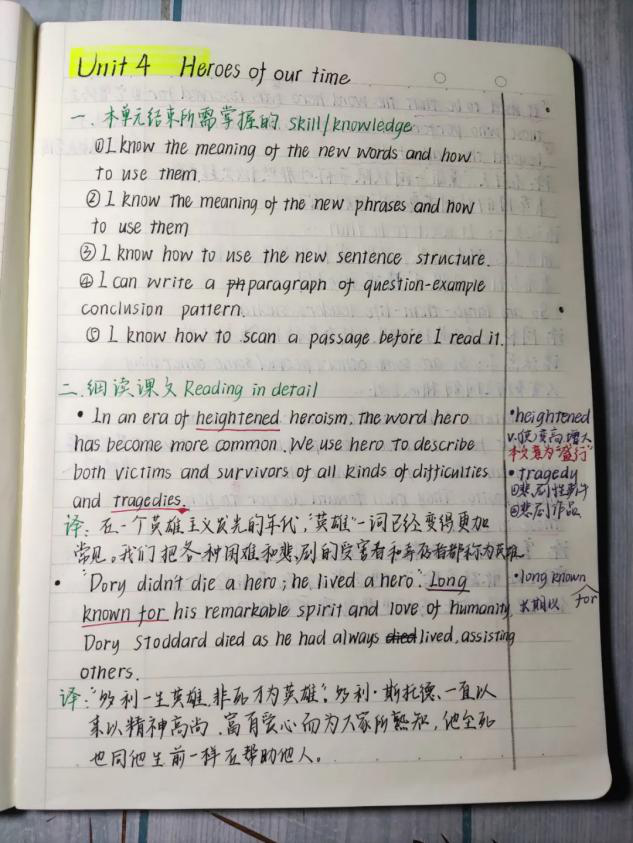 Unit 4 Heroes of our time
一、本单元结束所需掌握的 skill/knowledge
①I know the meaning of the new words and how
to use them.
② I know the meaning of the new phrases and how
to use them
③ I know how to use the new sentence structure.
④ I can write a paragraph of question-example
conclusion pattern.
⑤ I know how to scan a passage before I read it.
二、细读课文 Reading in detail
• In an era of heightened heroism, the word hero
has become more common. We use hero to describe
both victims and survivors of all kinds of difficulties
and tragedies.
译: 在一个英雄主义发光的年代,"英雄"一词已经变得更加
常见。我们把各种困难和悲剧的受害者和幸存者都称为英雄
• "Dory didn't die a hero; he lived a hero." Long
known for his remarkable spirit and love of humanity
Dory Stoddard died as he had always died lived, assisting
others.
译:"多利一生英雄,非死才为英雄。"多利·斯托德、一直以
来以精神高尚、富有爱心而为大家所熟知,他至死
也同他生前一样在帮助他人。
•heightened
v.使变高,增大
本文意为"盛行"
• tragedy
①悲剧性事件
②悲剧作品
•long known for
长期以